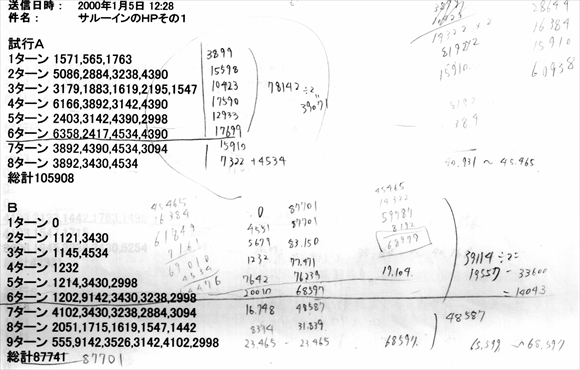 送信日時： 2000年1月5日 12:28
件名： サルーインのHPその１
試行A
1ターン 1571,565,1763 3899
2ターン 5086,2884,3238,4390 15598
3ターン 3179,1883,1619,2195,1547 10423
4ターン 6166,3892,3142,4390 17590
5ターン 2403,3142,4390,2998 12933
6ターン 6358,2417,4534,4390 17699
7ターン 3892,4390,4534,3094 15910
8ターン 3892,3430,4534 7322 +4534
総計105908
78142 ÷2=
39071
19322 ×2
81922
15910
28649
16384
15910
60958
～ 45.465
B
1ターン 0 0 87701
2ターン 1121,3430 4551 87701
3ターン 1145,4534 5679 83.150
4ターン 1232 1232 77.471
5ターン 1214,3430,2998 7642 76239 19.104
6ターン 1202,9142,3430,3238,2998 20010 68597
7ターン 4102,3430,3238,2884,3094 16.748 48587
8ターン 2051,1715,1619,1547,1442 8374 31.839
9ターン 555,9142,3526,3142,4102,2998 23.465 - 23.465 68597
総計87741 87701
45.465
16384
61849
45465
39114 ÷2=
19557 - 33600
= 14043
48587